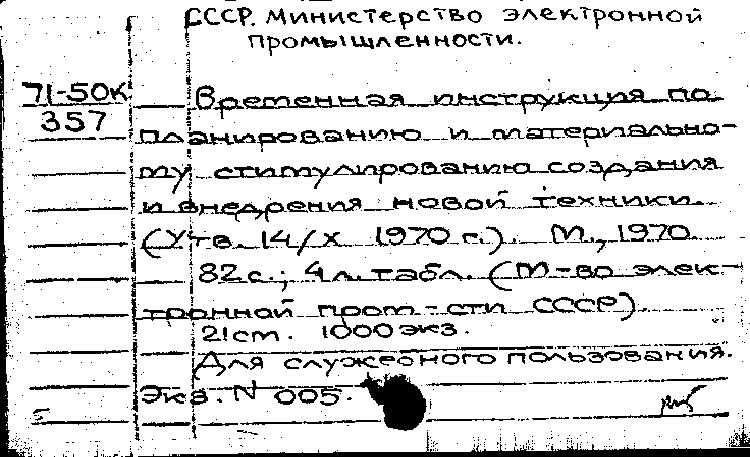 СССР. Министерство электронной
промышленности.
71-50к
357
Временная инструкция по
планированию и материально-
му стимулированию создания
и внедрения новой техники.
(Утв. 14/X 1970 г.). М., 1970.
82 с.; 4 л. табл. (М-во элек-
тронной пром-сти СССР).
21 см. 1000 экз.
Для служебного пользования.
Экз. N 005.